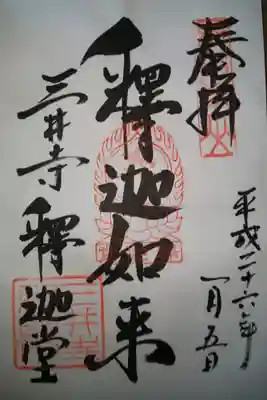 奉拝
平成二十六年
一月五日
釋迦如来
三井寺釋迦堂
三井寺